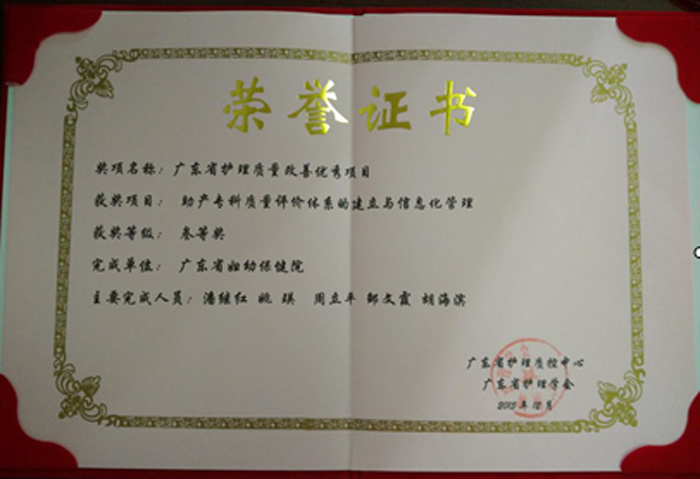 荣誉证书
奖项名称：广东省护理质量改善优秀项目
获奖项目：助产专科质量评价体系的建立与信息化管理
获奖等级：叁等奖
完成单位：广东省妇幼保健院
主要完成人员：潘继红 姚 瑛 周立平 邹文霞 胡海滨
广东省护理质控中心
广东省护理学会
2015年12月